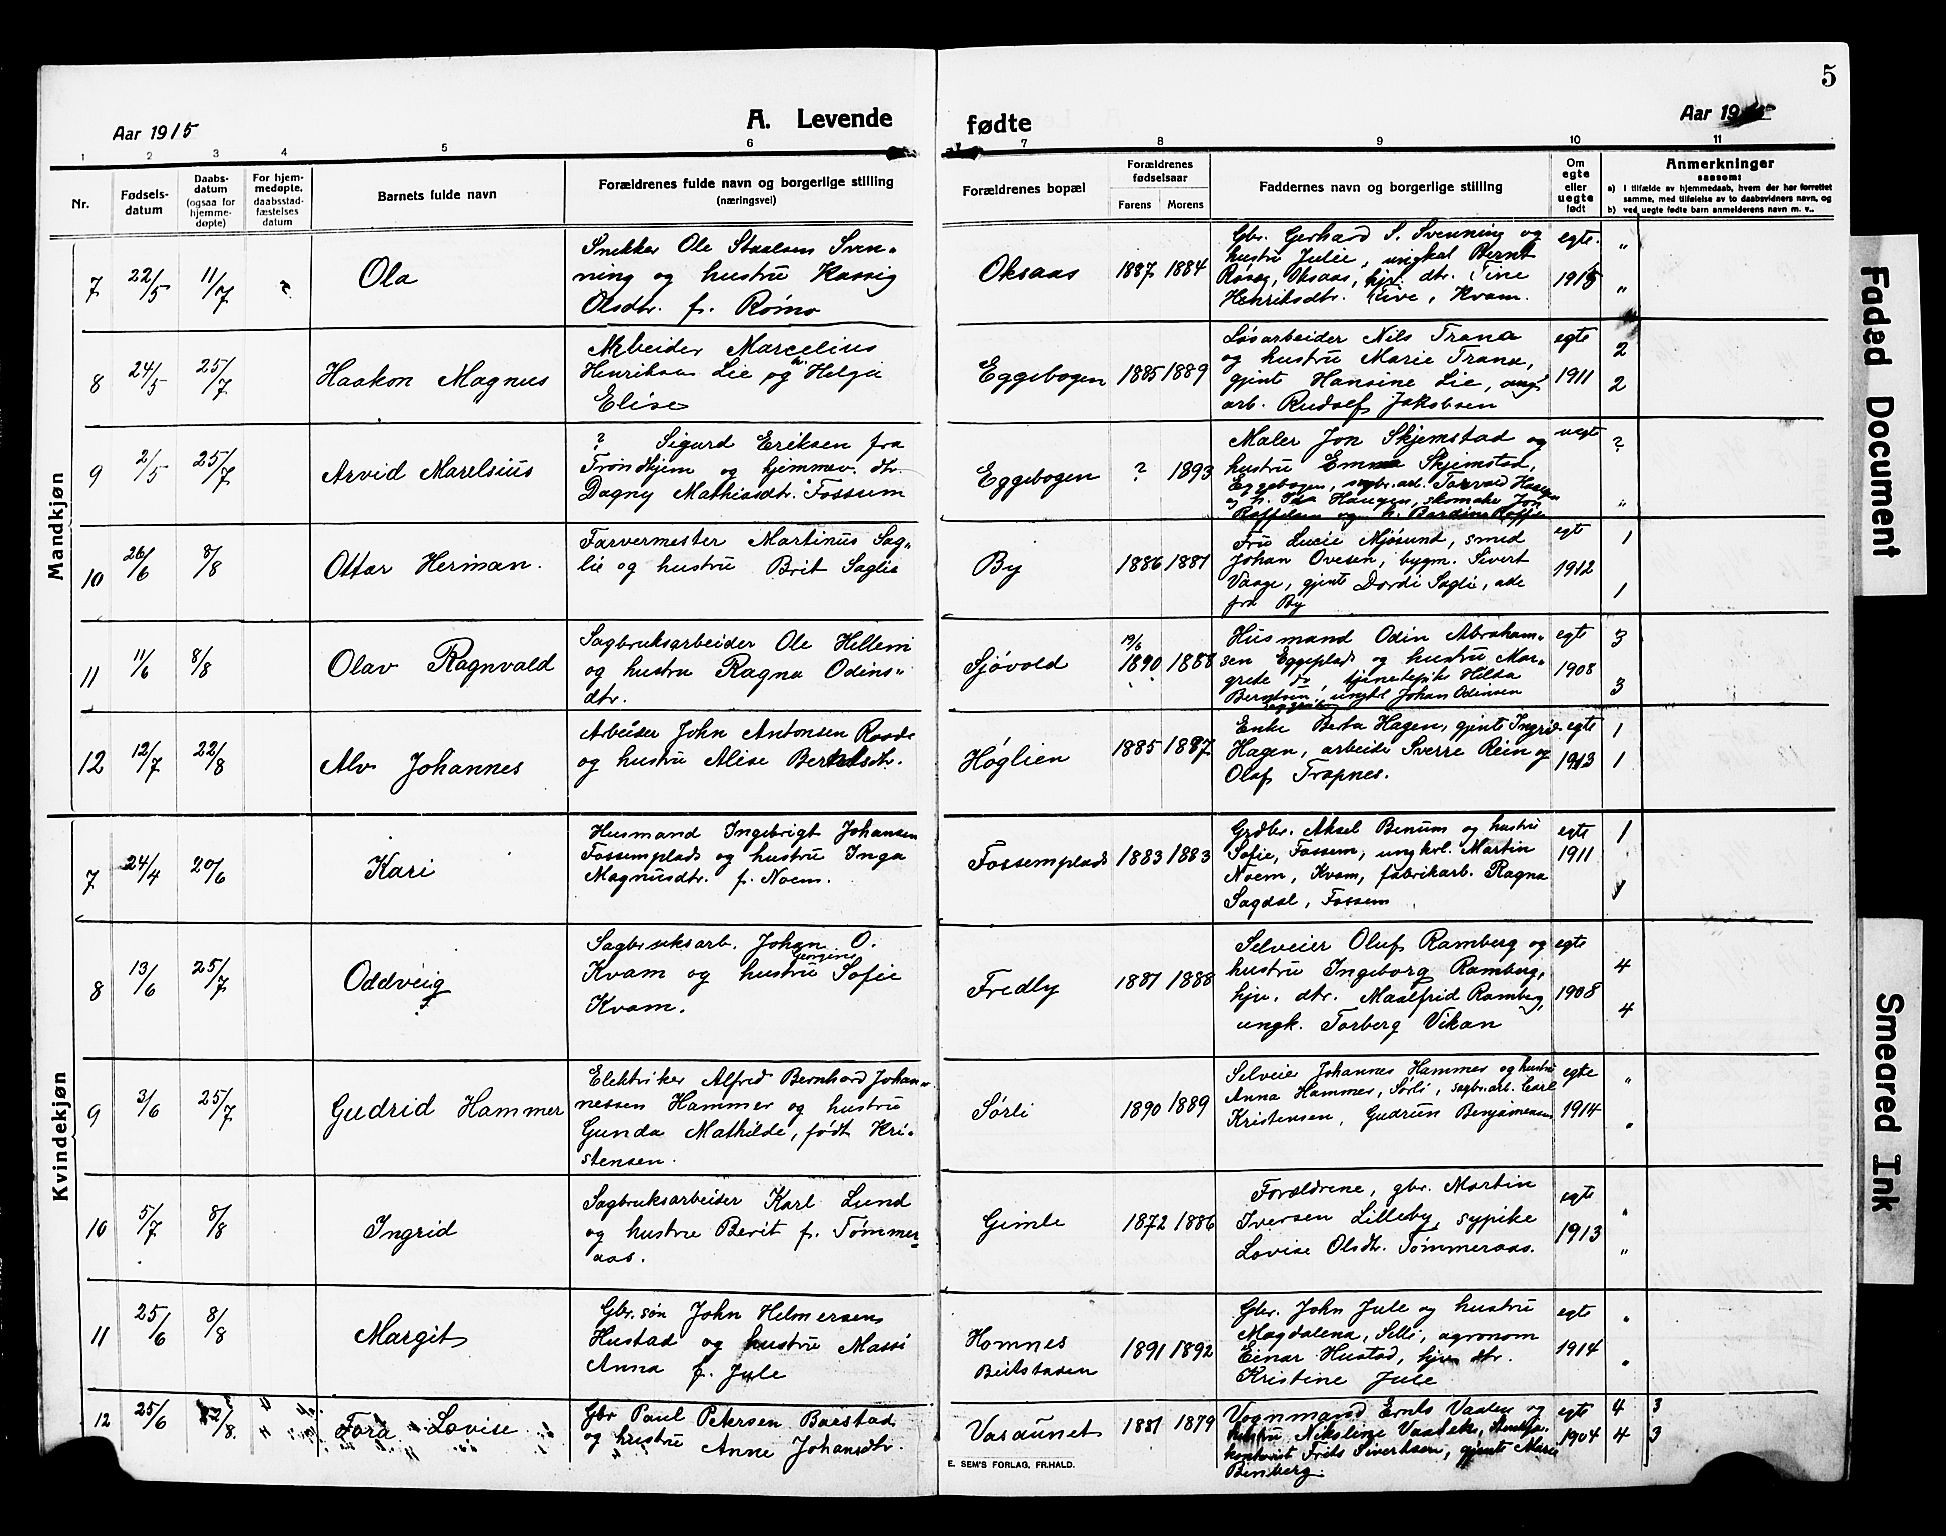 5
Aar 1915
A. Levende
fødte
Aar 19
1 2 3 4 5 6 7 8 9 10 11
Nr.
Fødsels-
datum
Daabs-
datum
(ogsaa for
hjemme-
døpte)
For hjem-
medøpte,
daabsstad-
fæstelses
datum
Barnets fulde navn
Forældrenes fulde navn og borgerlige stilling
(næringsvei)
Forældrenes bopæl
Forældrenes
fødselsaar
Farens Morens
Faddernes navn og borgerlige stilling
Om
egte
eller
uegte
født
Anmerkninger
saasom:
a) I tilfælde av hjemmedaab, hvem der har forrettet
samme, med tilføielse av to daabsvidners navn, og
b) ved uegte fødte barn anmelderens navn m. v..
Mandkjøn
7 22/5 11/7 Ola
Snekker Ole Staalsen Sven-
ning og hustru
Olsdtr. f. Römo
Oksaas 1887 1884
Gbr. Gerhard S. Svenning og
hustru Julie, ungkal Bernt
Oksaas, hjv. dtr. Tine
Henriksdtr. Five, Kvam.
egte.
1915
" "
8 24/5 25/7 Haakon Magnus
Arbeider Marcelius
Henriksen Lie og h. Helga
Elise
Eggebogen 1885 1889
Løsarbeider Nils Trana
og hustru Marie Trana,
gjent Hansine Lie, ung
arb. Rudolf Jakobsen
egte
1911
2
2
9 2/5 25/7 Arvid Marelsius
? Sigurd Eriksen fra
Trondhjem og hjemmev. dtr.
Dagny Mathiasdtr. Fossum
Eggebogen ? 1893
Maler Jon Skjemstad og
hustru Emma Skjemstad,
Eggebogen, sagbr.arb. Torvald Haugen
og h. Haugen, skomaker Jon
og h. Bardine
uegte
?
"
10 26/6 8/8 Ottar Herman.
Farvermester Martinus Sag-
lie og hustru Brit Saglie
By 1886 1881
Fru Lucie Mjøsund, smed
Johan Ovesen, bygm. Sivert
Vaage, gjent Dordi Saglie, alle
fra By
egt
1912
1
1
11 11/6 8/8 Olav Ragnvald
Sagbruksarbeider Ole Hellem
og hustru Ragna Odins-
dtr.
Sjøvold 19/6 1890 1888
Husmand Odin Abraham-
sen Eggeplads og hustru Mar-
grete do, tjenestepike Hilda
Berntsen, ungkl Johan Odinsen
egt
1908
3
3
12 12/7 22/8 Alv Johannes
Arbeider John Antonsen Raade
og hustru Alise Berntsdtr.
Høglien 1885 1887
Enke Berta Hagen, gjent Ingrid
Hagen, arbeide Sverre Rein og
Olaf Trapnes.
egte
1913
1
1
Kvindekjøn
7 24/4 20/6 Kari
Husmand Ingebrigt Johansen
Fossemplads og hustru Inga
Magnusdtr. f. Noem.
Fossemplads 1883 1883
Grdbr. Aksel Benum og hustru
Sofie, Fossem, ungkrl. Martin
Noem, Kvam, fabrikarb. Ragna
Sagdal, Fossem
egte
1911
1
1
8 13/6 25/7 Oddveig
Sagbruksarb. Johan O.
Kvam og hustru Georgine Sofie
Kvam.
Fredly 1881 1888
Selveier Oluf Ramberg og
hustru Ingeborg Ramberg,
hjv. dtr. Maalfrid Ramberg,
ungk. Torberg Vikan
egte
1908
4
4
9 3/6 25/7 Gudrid Hammer
Elektriker Alfred Bernhard Johan-
nessen Hammer og hustru
Gunda Mathilde, født Kri-
stensen.
Sørli 1890 1889
Selveier Johannes Hammer og hustru
Anna Hammer, Sørli, sagbr.arb. Carl
Kristensen, Gudrun Benjaminsen
egte
1914
" "
10 5/7 8/8 Ingrid
Sagbruksarbeider Karl Lund
og hustru Berit f. Tømmer-
aas.
Gimle 1872 1886
Forældrene, gbr. Martin
Iversen Lilleby, sypike
Lovise Olsdtr. Tømmeraas.
egt
1913
" "
11 25/6 8/8 Margit
Gbr.søn John Helmersen
Hustad og hustru Massi
Anna f. Jule
Homnes
Beitstaden 1891 1892
Gbr. John Jule og hustru
Magdalena, Selli, agronom
Einar Hustad, hjv. dtr.
Kristine Jule
egte
1914
" "
12 25/6 22/8 Tora Lovise
Gbr Paul Petersen Barstad
og hustru Anne Johansdtr.
Vasaunet 1881 1879
Vognmand Ernts Vaaten og
hustru Nikoline
kontorist Frits Sivertsen, gjent Marie
Binberg.
egt
1904
4 3
4 3
E. SEM'S FORLAG, FR.HALD.
Faded Document
Smeared Ink